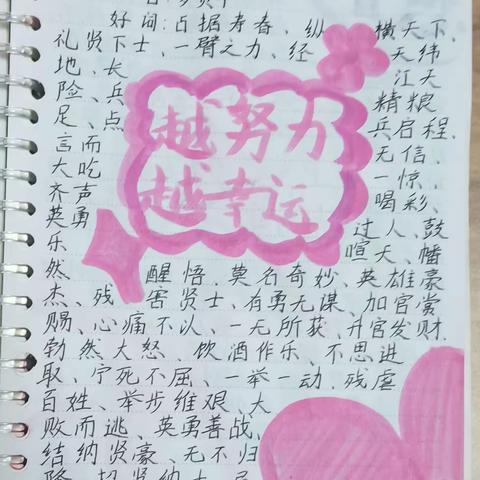 好词:占据寿春、纵横天下、
礼贤下士、一臂之力、经天纬
地、长江天
险、兵精粮
足、点兵启程、
言而无信、
大吃一惊、
齐声喝彩、
英勇过人、鼓
乐喧天、幡
然醒悟、莫名奇妙、英雄豪
杰、残害贤士、有勇无谋、加官赏
赐、心痛不以、一无所获、升官发财、
勃然大怒、饮酒作乐、不思进
取、宁死不屈、一举一动、残虐
百姓、举步维艰、大
败而逃、英勇善战、
结纳贤豪、无不归
越努力
越幸运